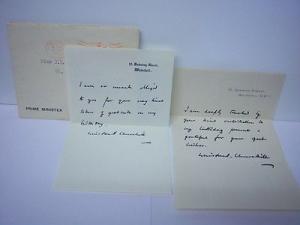 Miss
PRIME MINISTER
10, Downing Street,
Whitehall.
I am so much obliged
to you for your very kind
letter of
Winston S. Churchill
10, Downing Street,
Whitehall.
I am deeply touched by
your kind contribution to
my birthday present &
grateful for your good
wishes.
Winston S. Churchill